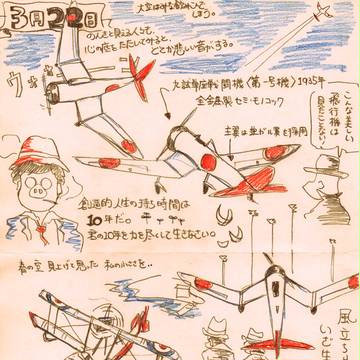 3月22日
大空はみな
しまう。
のんきと見える人々も、
心の底をたたいてみると、
どこか悲しい音がする。
九試単座戦闘機〈第一号機〉1935年
全金属製セミ・モノコック
主翼は逆ガル翼を採用
こんな美しい
飛行機は
見たことない！
創造的人生の持ち時間は
10年だ。
君の10年を力を尽くして生きなさい。
春の空 見上げて思った 私の小ささを・・
風立ち
いざ生